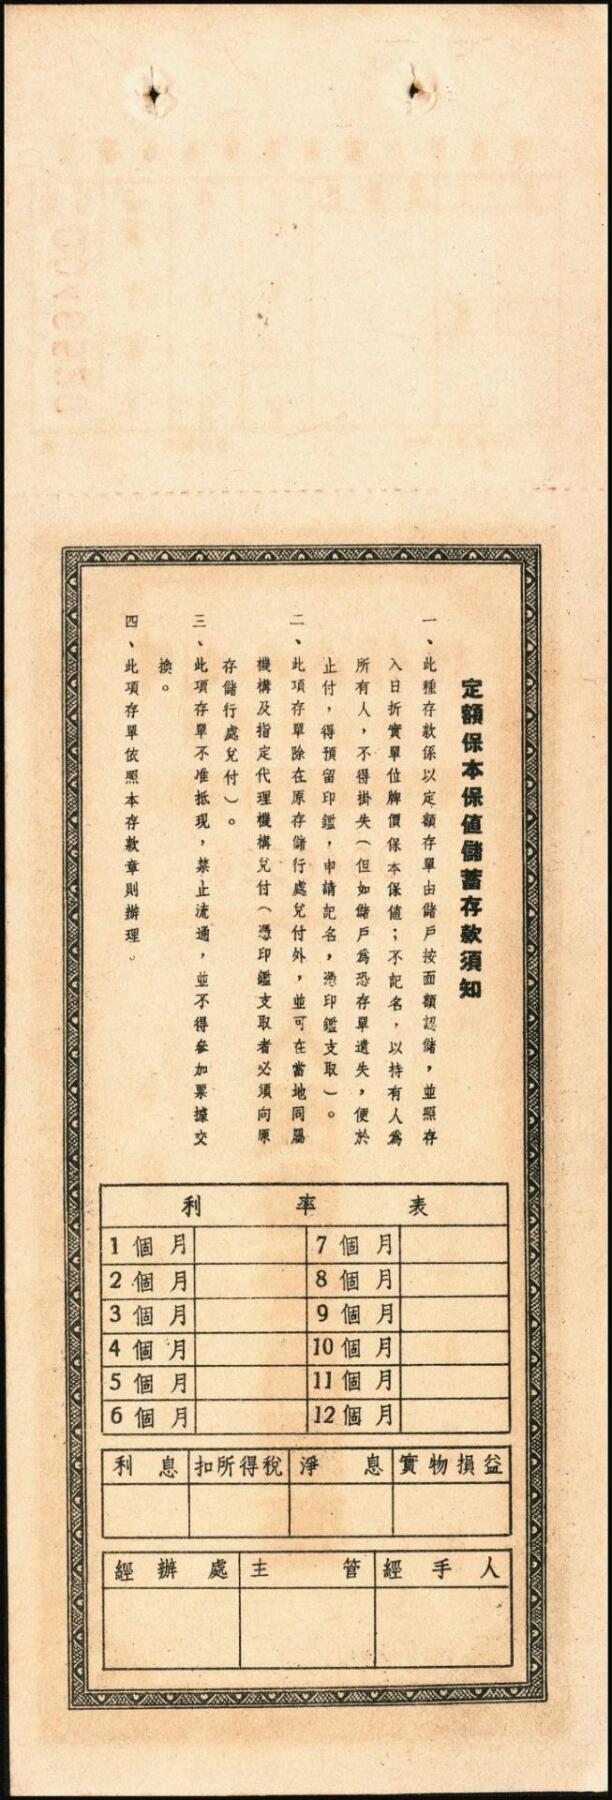 定額保本保值儲蓄存款須知
一、此種存款係以定額存單由儲戶按面額認儲，並照存
入日折實單位牌價保本保值；不記名，以持有人為
所有人，不得掛失（但如儲戶為恐存單遺失，便於
止付，得預留印鑑，申請記名，憑印鑑支取）。
二、此項存單除在原存儲行處兌付外，並可在當地同屬
機構及指定代理機構兌付（憑印鑑支取者必須向原
存儲行處兌付）。
三、此項存單不准抵現，禁止流通，並不得參加票據交
換。
四、此項存單依照本存款章則辦理。
利 率 表
1 個 月 7 個 月
2 個 月 8 個 月
3 個 月 9 個 月
4 個 月 10 個 月
5 個 月 11 個 月
6 個 月 12 個 月
利 息 扣所得稅 淨 息 實物損益
經 辦 處 主 管 經 手 人